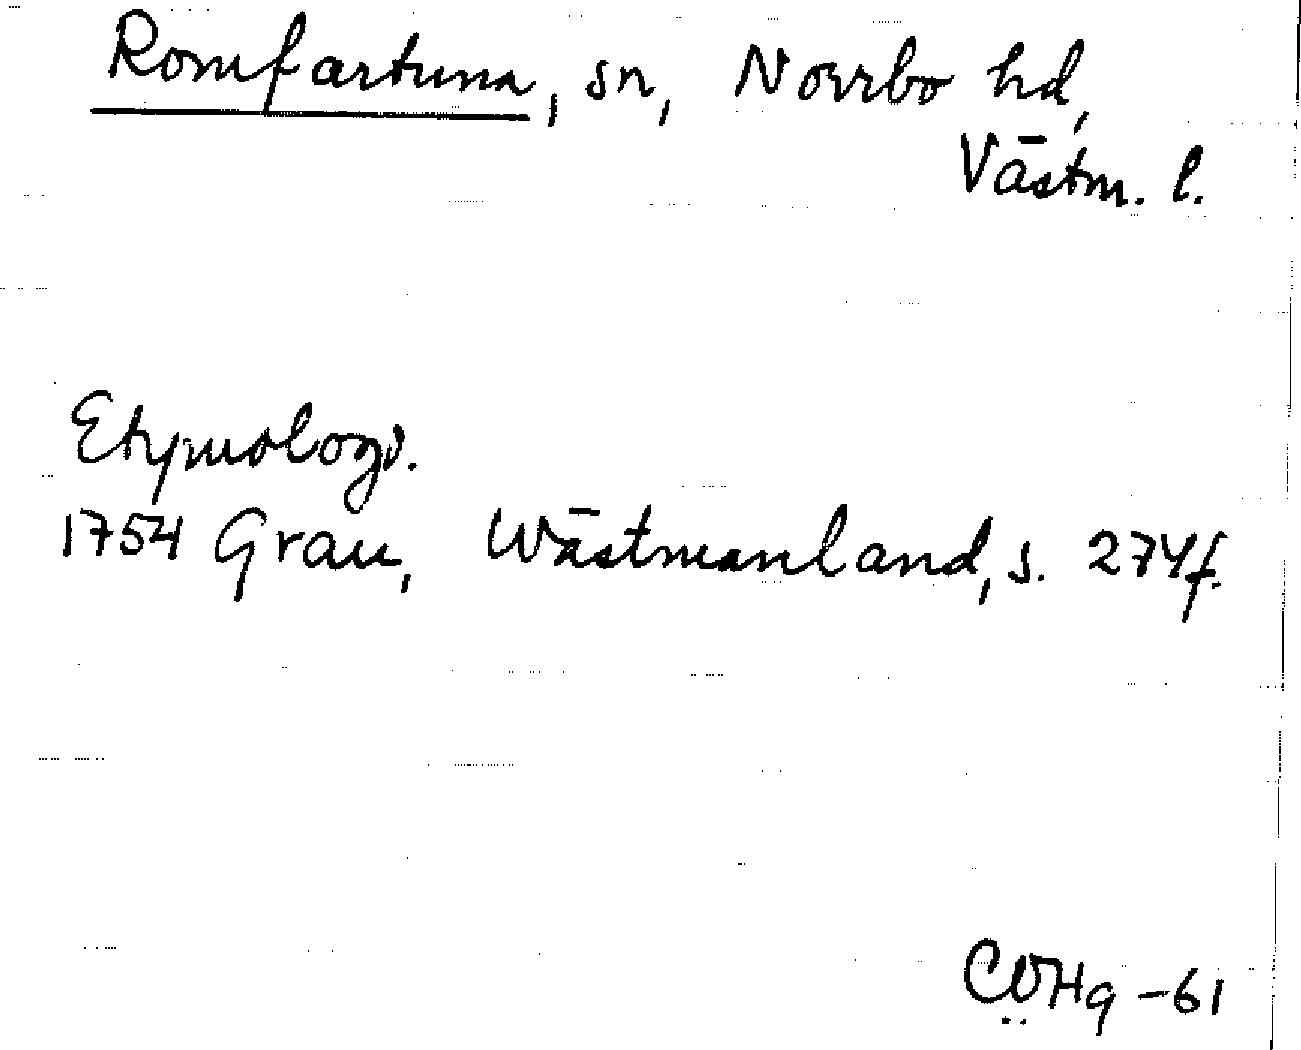 Romfartuna, sn, Norrbo hd,
Västm. l.
Etymologi.
1754 Grau, Wästmanland, s. 274f.
-61